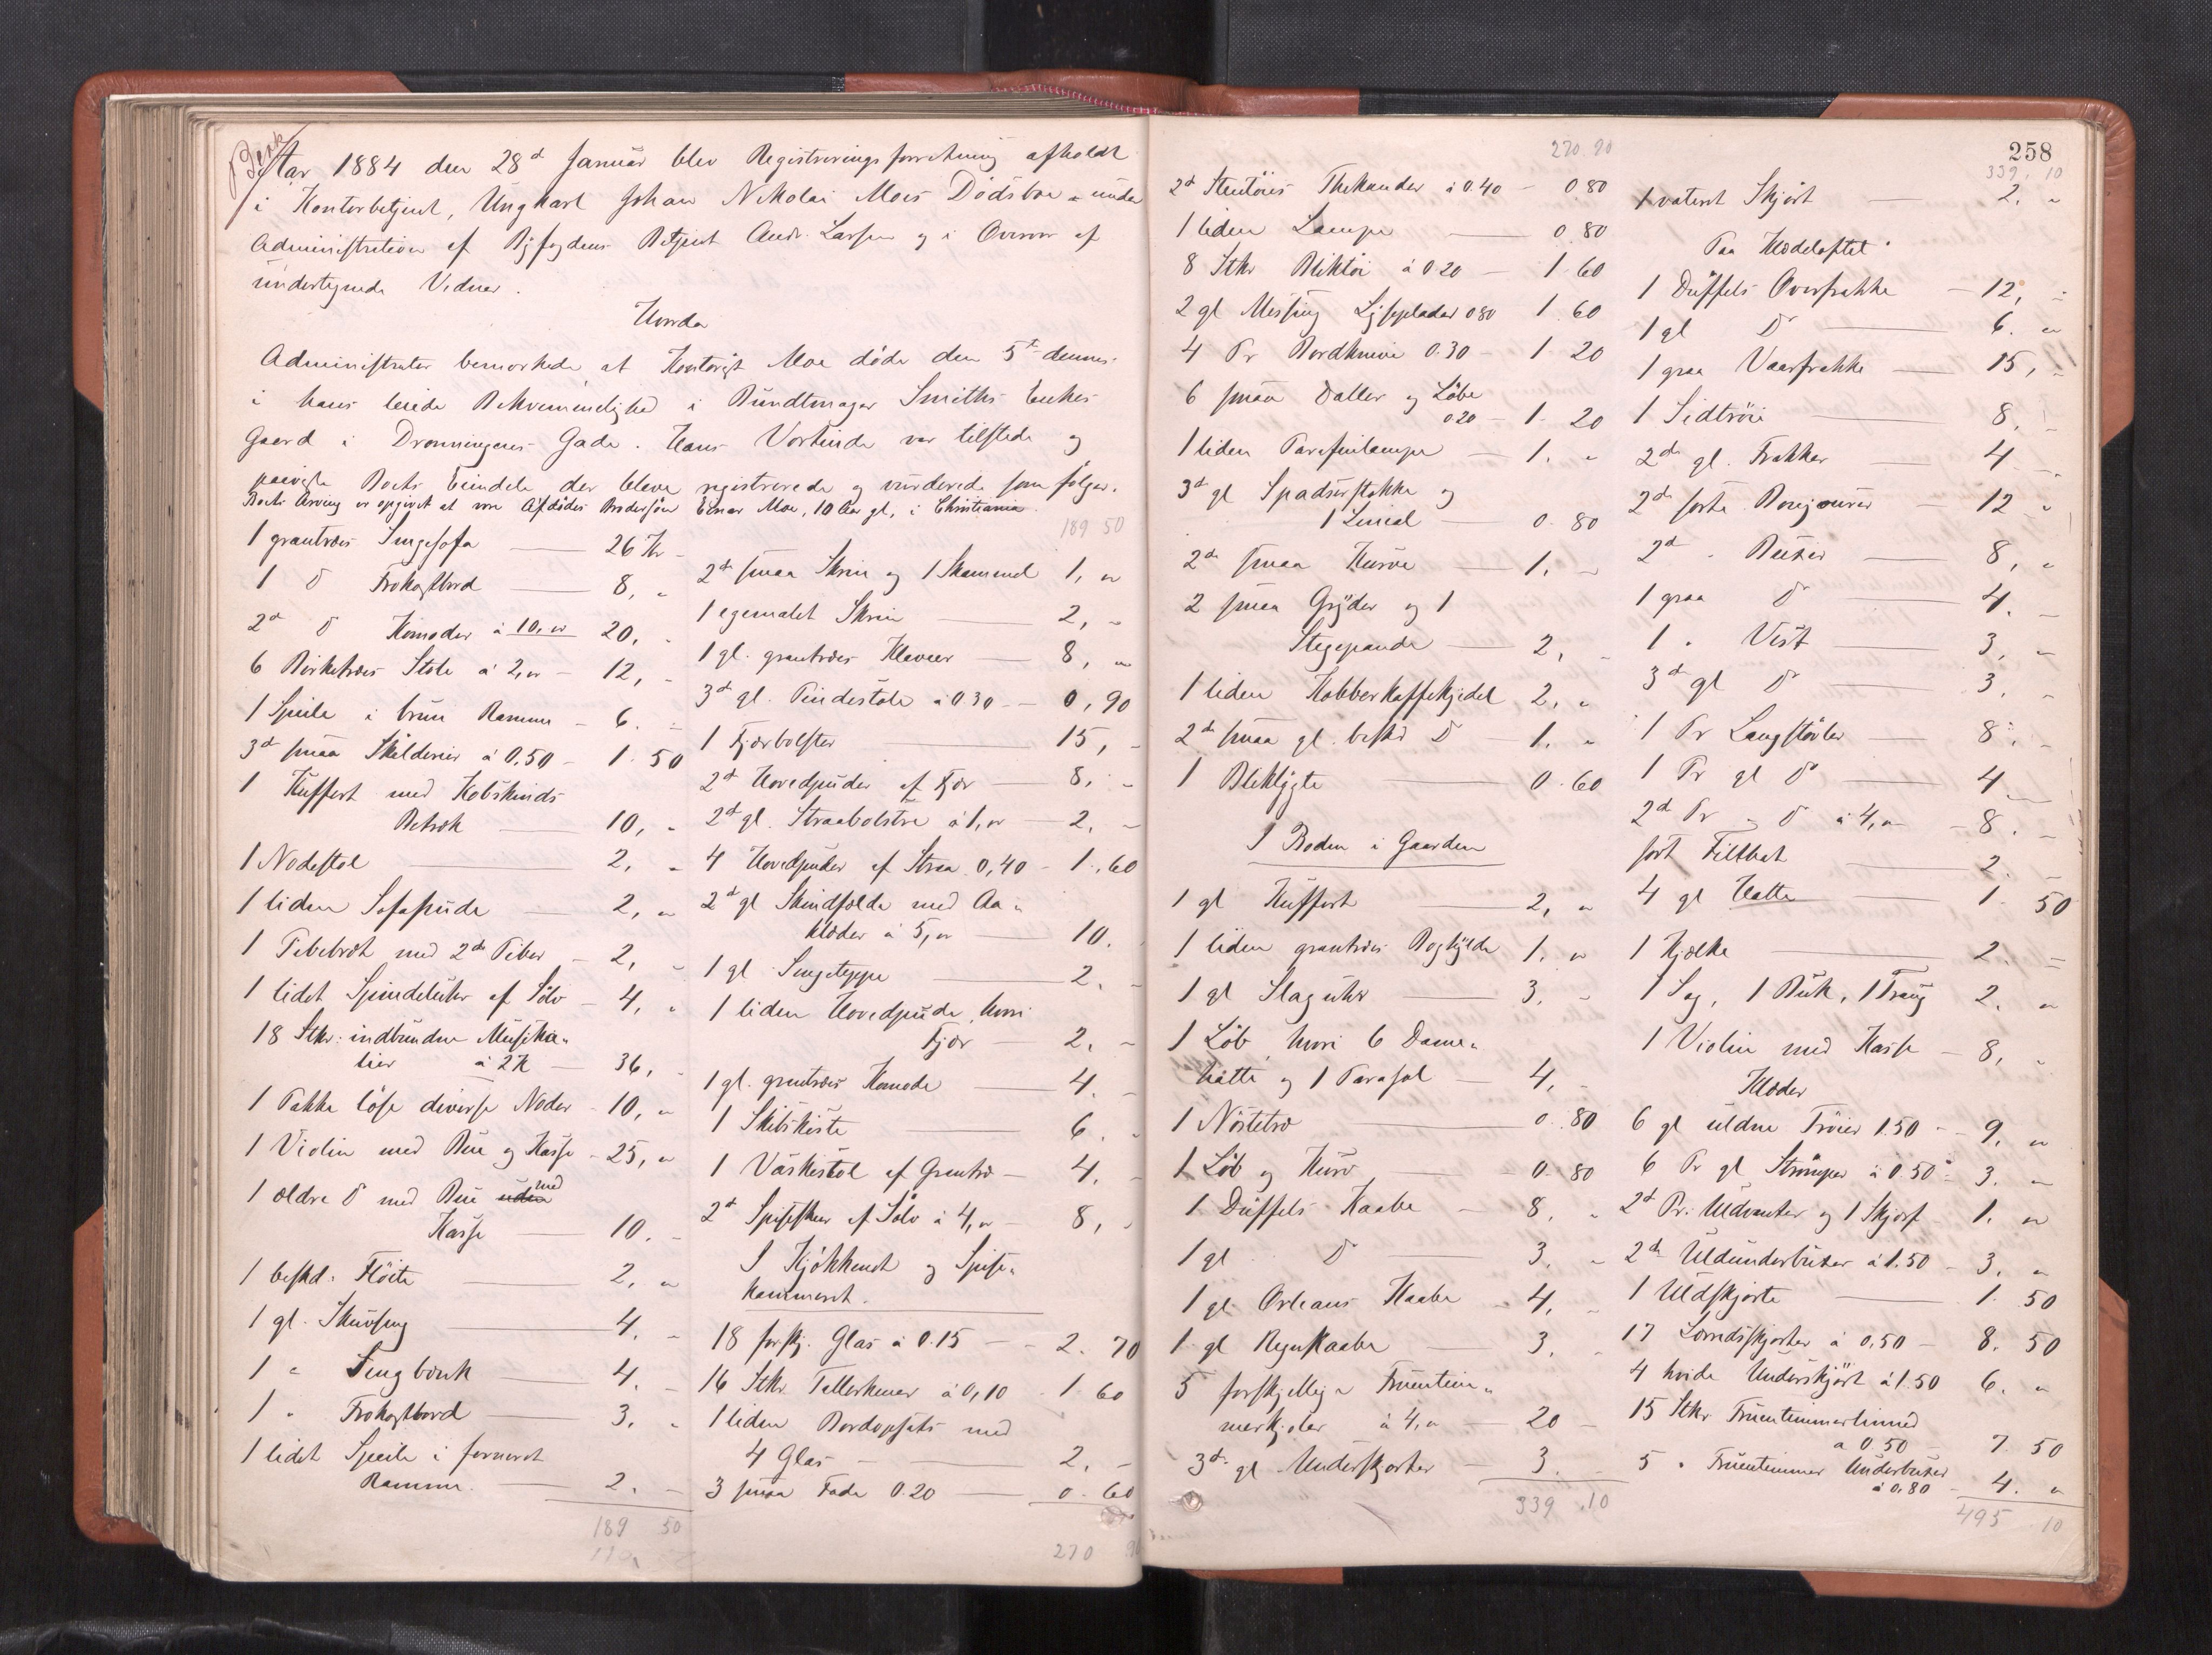 Aar 1884 den 28d Januar blev Registreringsforretning afholdt
i Kontorbetjent, Ungkarl Johan Nikolai Moes Dödsbo under
Administration af Byfogdens Betjent Andr. Larsen og i Overvær af
undertegnede Vidner.
Hvorda
Administrator bemærkede, at Kontorist Moe döde den 5te dennes
i hans leiede Bekvemmelighed i Bundtmager Smiths Enkes
Gaard i Dronningens Gade. Hans Værtinde var tilstede og
paaviste Boets Eiendele der bleve registrerede og vurderede som fölger.
Boets Arving er opgivet at være Afdödes Brodersön Einar Moe, 10 Aar gl, i Christiania.
1 grantræs Sengesofa 26 Kr -
1 D Frokostbord 8, "
2d D Komoder à 10, " 20, -
6 Birketræs Stole à 2, " - 12, -
1 Speile i brun Ramme - 6. -
3d smaa Skilderier à 0,50 - 1. 50
1 Kuffert med Kobskinds
Betræk 10, "
1 Nodestol 2, "
1 liden Sofapude 2, "
1 Pibebræt med 2de Piber - 2, -
1 lidet Spindeluhr af Sölv - 4, "
18 Stkr. indbundne Musika-
lier à 2 K 36, -
1 Pakke löse diverse Noder - 10, "
1 Violin med Bue og Kasse - 25, "
1 ældre D med Bue uden med
Kasse 10. -
1 beskd. Flöite 2, "
1 gl. Skuvseng 4. -
1 " Sengbænk 4. -
1 " Frokostbord 3. "
1 lidet Speile i forneret
Ramme. 2. -
189 50
189 50
2d smaa Skrin og 1 Skammel 1, "
1 egemalet Skrin 2, -
1 gl. grantræs Klaveer 8, "
3d gl. Pindestole à 0.30 - 0, 90
1 Fjærbolster 15, -
2d Hovedpuder af Fjær 8. -
2d gl. Straabolstre à 1, " 2, -
4 Hovedpuder af Straa 0,40 - 1. 60
2d gl Skindfelde med Aa-
klæder à 5, " 10.
1 gl Sengeteppe 2. -
1 liden Hovedpude, hvori
Fjær 2. -
1 gl. grantræs Komode 4. -
1 Skibskiste 6. "
1 Vaskestol af Grantræ - 4. -
2d Spiseskeer af Sölv à 4, " 8, -
I Kjökkenet og Spise-
kammeret.
18 forskj. Glas à 0.15 - 2. 70
16 Stkr. Tallerkener à 0,10 - 1. 60
1 liden Bordopsats med
4 Glas 2. -
3 smaa Fade 0.20 0. 60
270
270 90
2d Stentöies Thekander à 0.40 - 0.80
1 liden Lampe 0.80
8 Stkr Bliktöi à 0.20 - 1.60
2 gl Messing Lyseplader 0.80 1.60
4 Pr Bordknive 0.30 - 1.20
6 smaa Daller og Löbe
0.20 - 1. 20
1 liden Parafinlampe 1. "
3d gl Spadserstokke og
1 Lineal 0. 80
2de smaa Kurve 1. -
2 smaa Gryder og 1
Stegepande 2, -
1 liden Kobberkaffekjedel 2, "
2de smaa gl. beskd D - 1. "
1 Bliklygte 0.60
I Boden i Gaarden
1 gl Kuffert 2, "
1 liden grantræs Boghylde 1. "
1 gl Slaguhr 3. -
1 Löb, hvori 6 Dame-
hatte og 1 Parasol 4, -
1 Nöstetræ 0. 80
1 Löb og Kurv 0. 80
1 Düffels Kaabe 8. "
1 gl D 3. "
1 gl. Orleans Kaabe 4, -
1 gl Regnkaabe 3. -
5 forskjellige Fruentim-
merkjoler à 4, " 20 -
3de gl Underskjorter 3. -
339.10
258
339. 10
1 vateret Skjört 2. "
Paa Klædeloftet
1 Düffels Overfrakke 12, -
1 gl D 6. "
1 graa Vaarfrakke 15, -
1 Sidtröie 8. -
2de gl. Frakker 4 -
2de sorte Bonjourer 12 "
2d " Buxer 8, "
1 graa D 4. -
1 " Vest 3, -
3de gl D 3. -
1 Pr Langstövler 8. -
1 Pr gl D 4 -
2d Pr " D à 4, " - 8. -
sort Filthat 2. -
4 gl Hatte 1. 50
1 Kjælke 2. -
1 Sag, 1 Buk, 1 Traug 2. "
1 Violin med Kasse - 8, -
Klæder
6 gl uldne Tröier 1.50 - 9, "
6 Pr gl Strömper à 0.50 - 3. "
2d Pr. Uldvanter og 1 Skjærf 1. "
2de Uldunderbuxer à 1.50 - 3. "
1 Uldskjorte 1. 50
17 Lærredsskjorter à 0,50 - 8. 50
4 hvide Underskjört à 1.50 6. "
15 Stkr Fruentimmerlinned
à 0.50 7. 50
5 " Fruentimmer Underbuxer
à 0.80 4. "
495.10